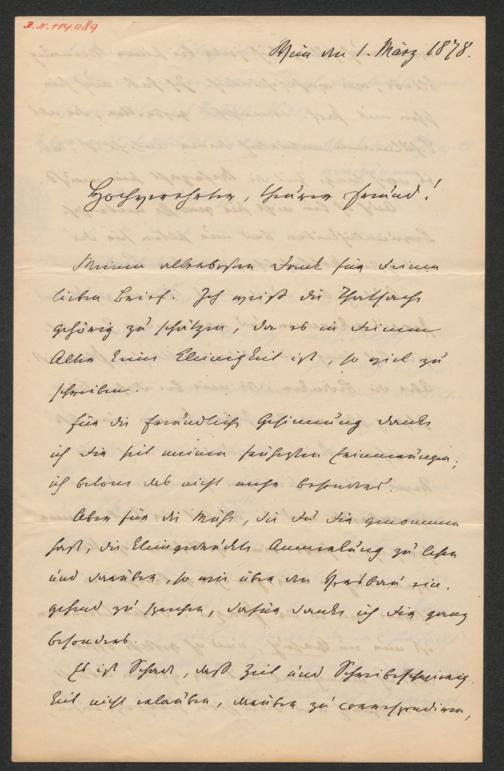 J.N. 114.089
Wien den 1. März 1878.
Hochverehrter, theurer Freund!
Meinen allerbesten Dank für Deinen
lieben Brief. Ich weiß die Thatsache
gehörig zu schätzen, da es in Deinem
Alter keine Kleinigkeit ist, so viel zu
schreiben.
Für die freundliche Gesinnung danke
ich Dir seit meinen frühesten Erinnerungen;
ich betone das nicht mehr besonders.
Aber für die Mühe, die Du Dir genommen
hast, die kleingedruckte Anmerkung zu lesen
und darüber, so wie über den ein-
gehend zu sprechen, dafür danke ich Dir ganz
besonders.
Es ist Schade, daß Zeit und Schreibeschwierig
keit nicht erlauben, darüber zu correspondiren,